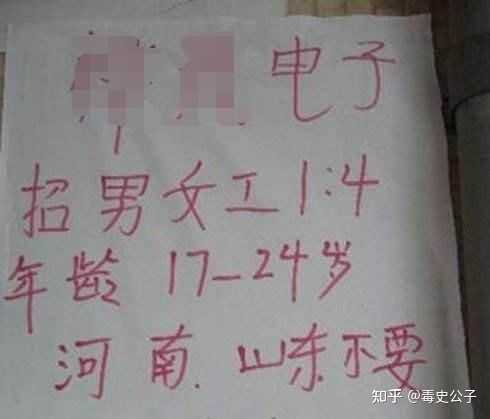 电子
招男女工1:4
年龄 17-24岁
河南.山东不要
知乎 @毒史公子